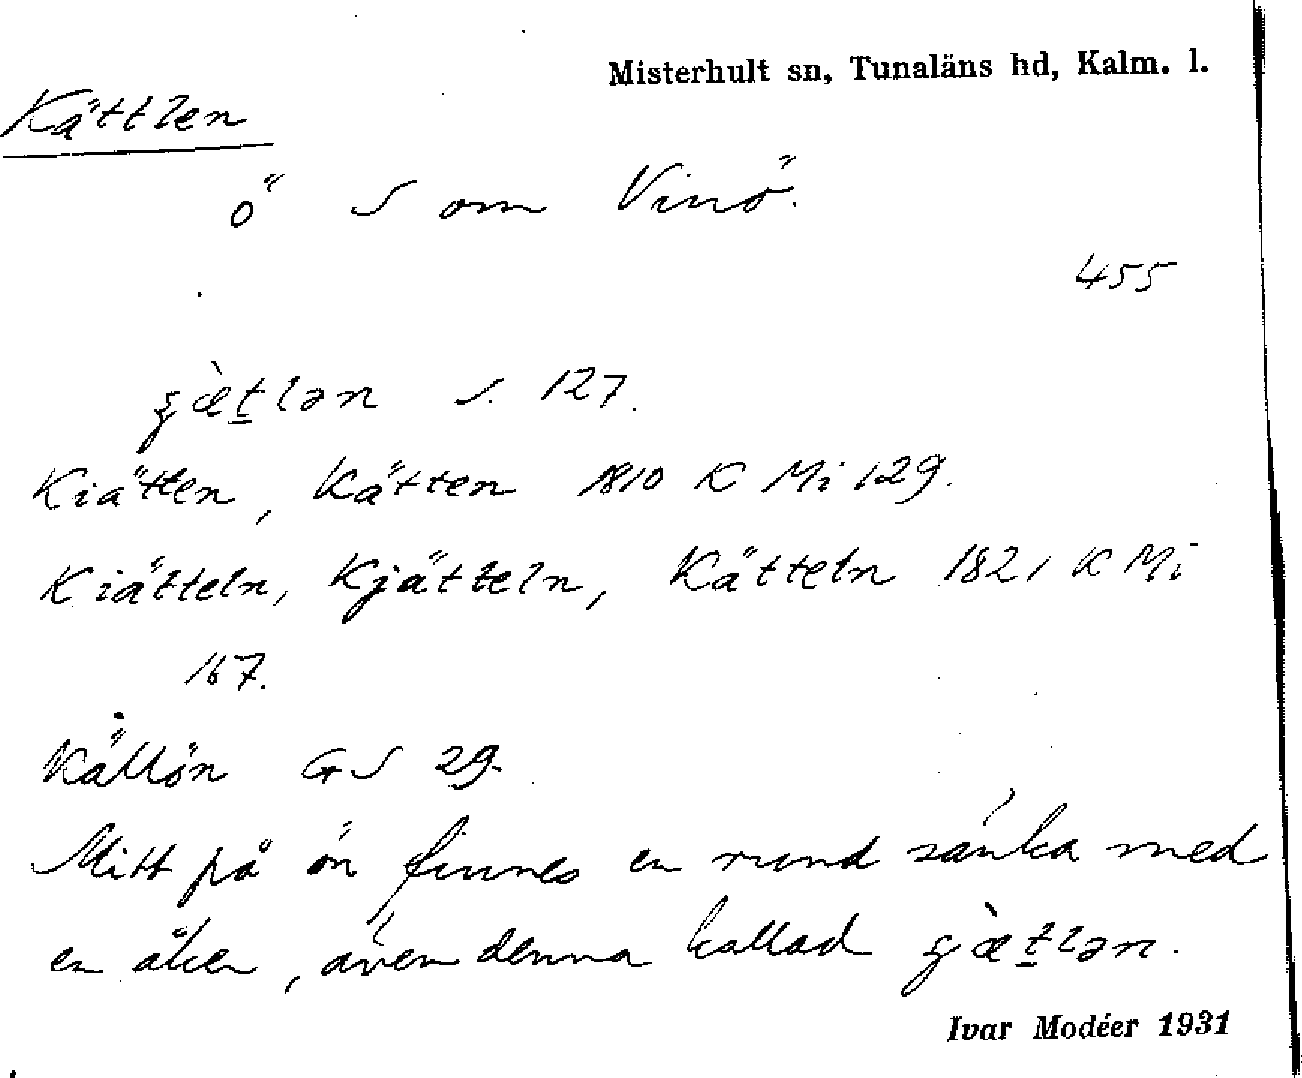 Misterhult sn, Tunaläns hd, Kalm. l.
Kättlen
ö S om Vinö.
455
ʂæ̀t̲lən s. 127.
Kiätten, Kätten 1810 K Mi 129.
Kiätteln, Kjätteln, Kätteln 1821 K Mi
167.
Källön GS 29.
Mitt på ön finnes en rund sänka med
en åker, även denna kallad ʂæ̀t̲lən.
Ivar Modéer 1931